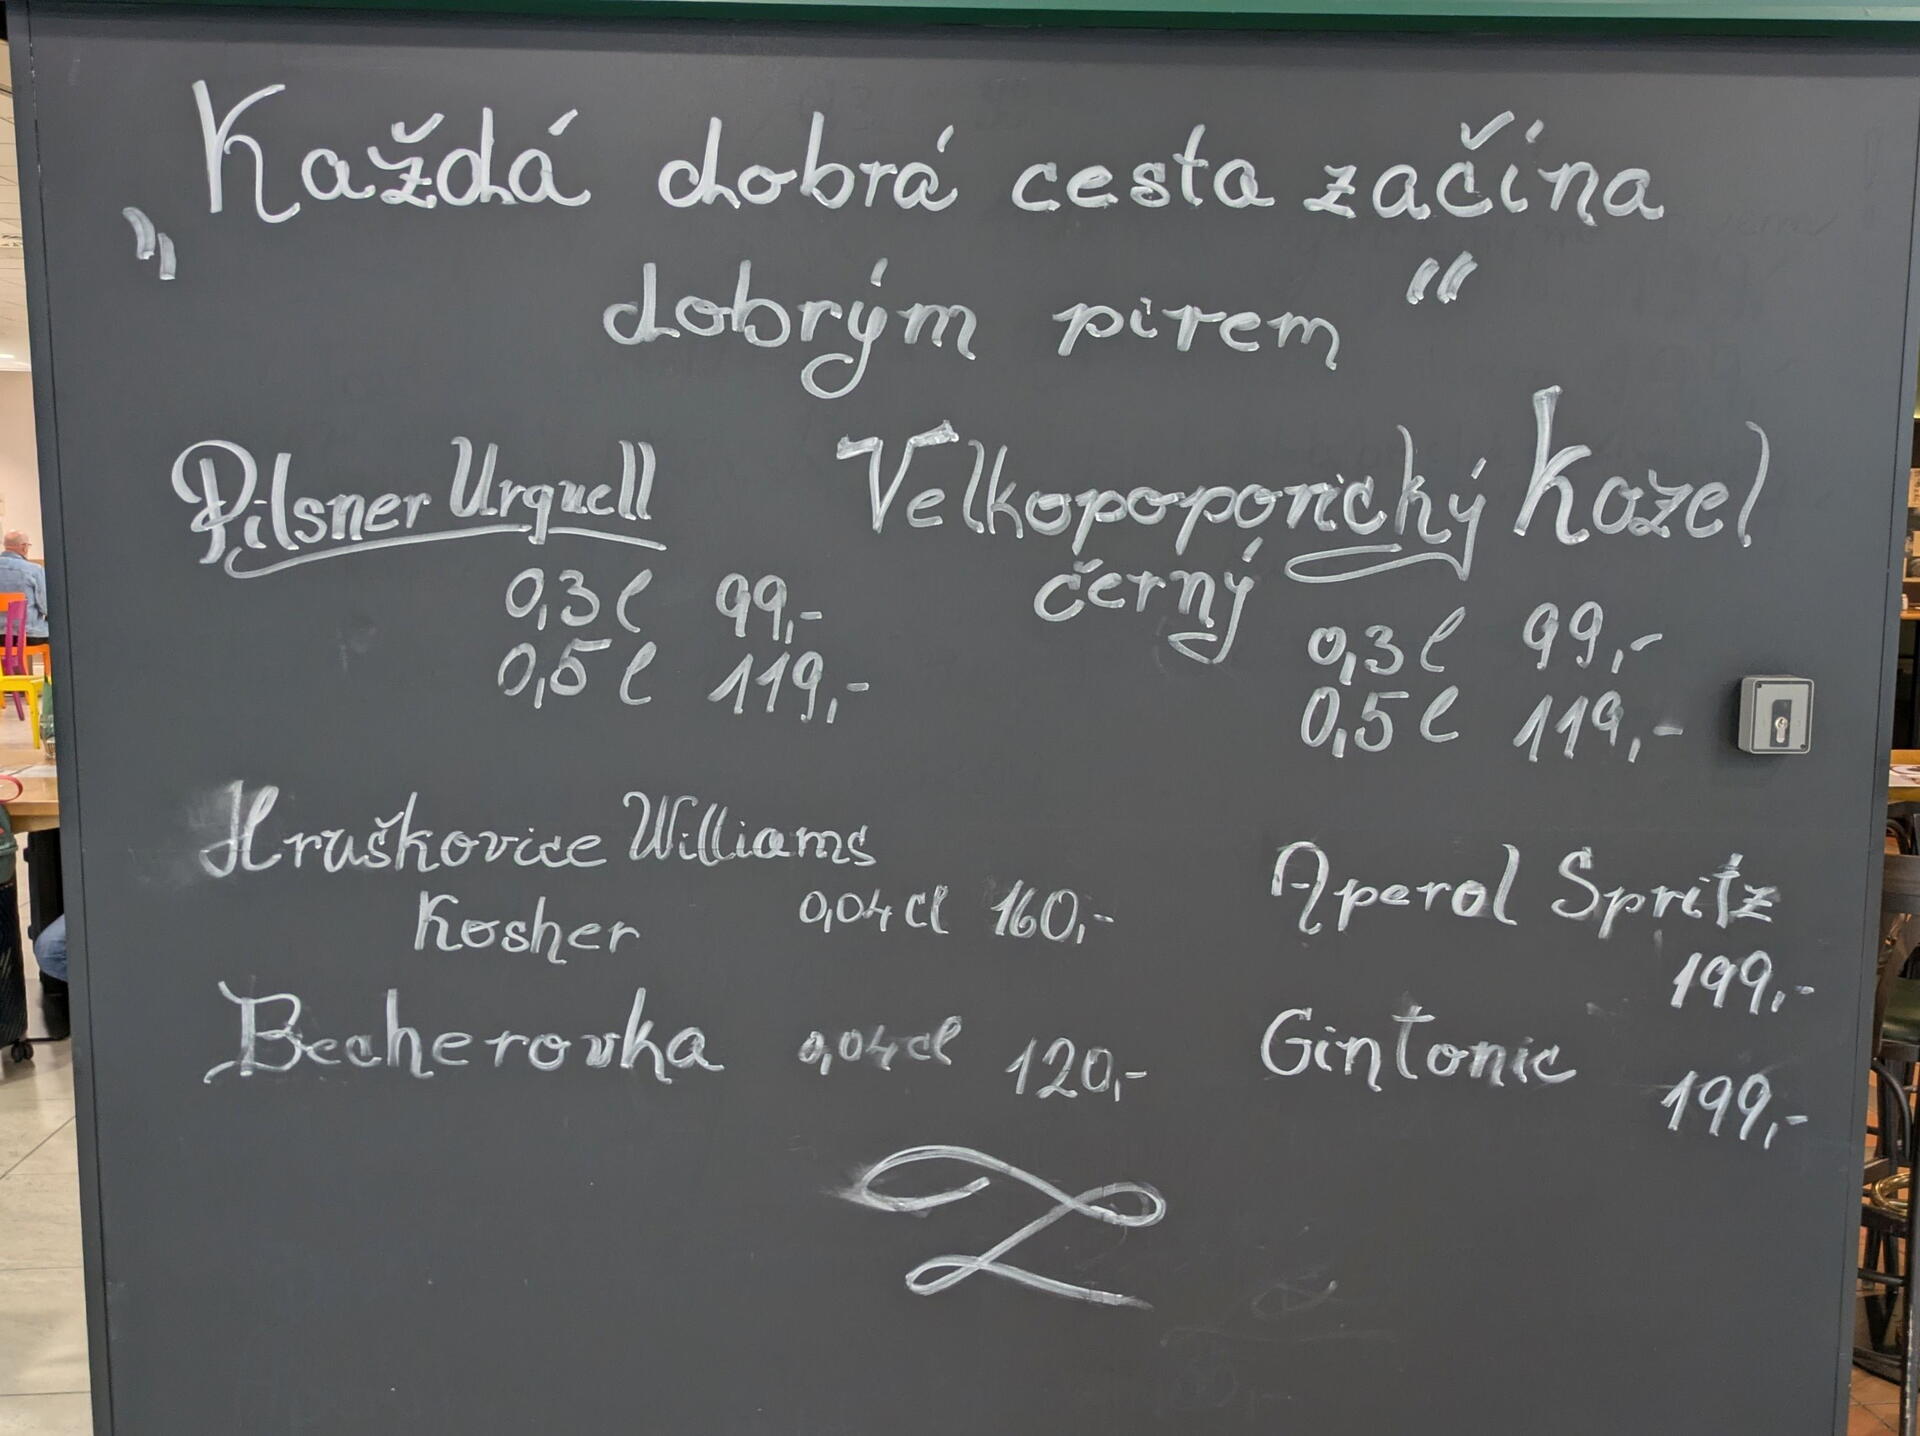 „Každá dobrá cesta začína
dobrým pivem“
Pilsner Urquell
0,3 l 99,-
0,5 l 119,-
Velkopopovický Kozel
černý
0,3 l 99,-
0,5 l 119,-
Hruškovice Williams
Kosher 0,04 cl 160,-
Becherovka 0,04 cl 120,-
Aperol Spritz
199,-
Gintonic
199,-